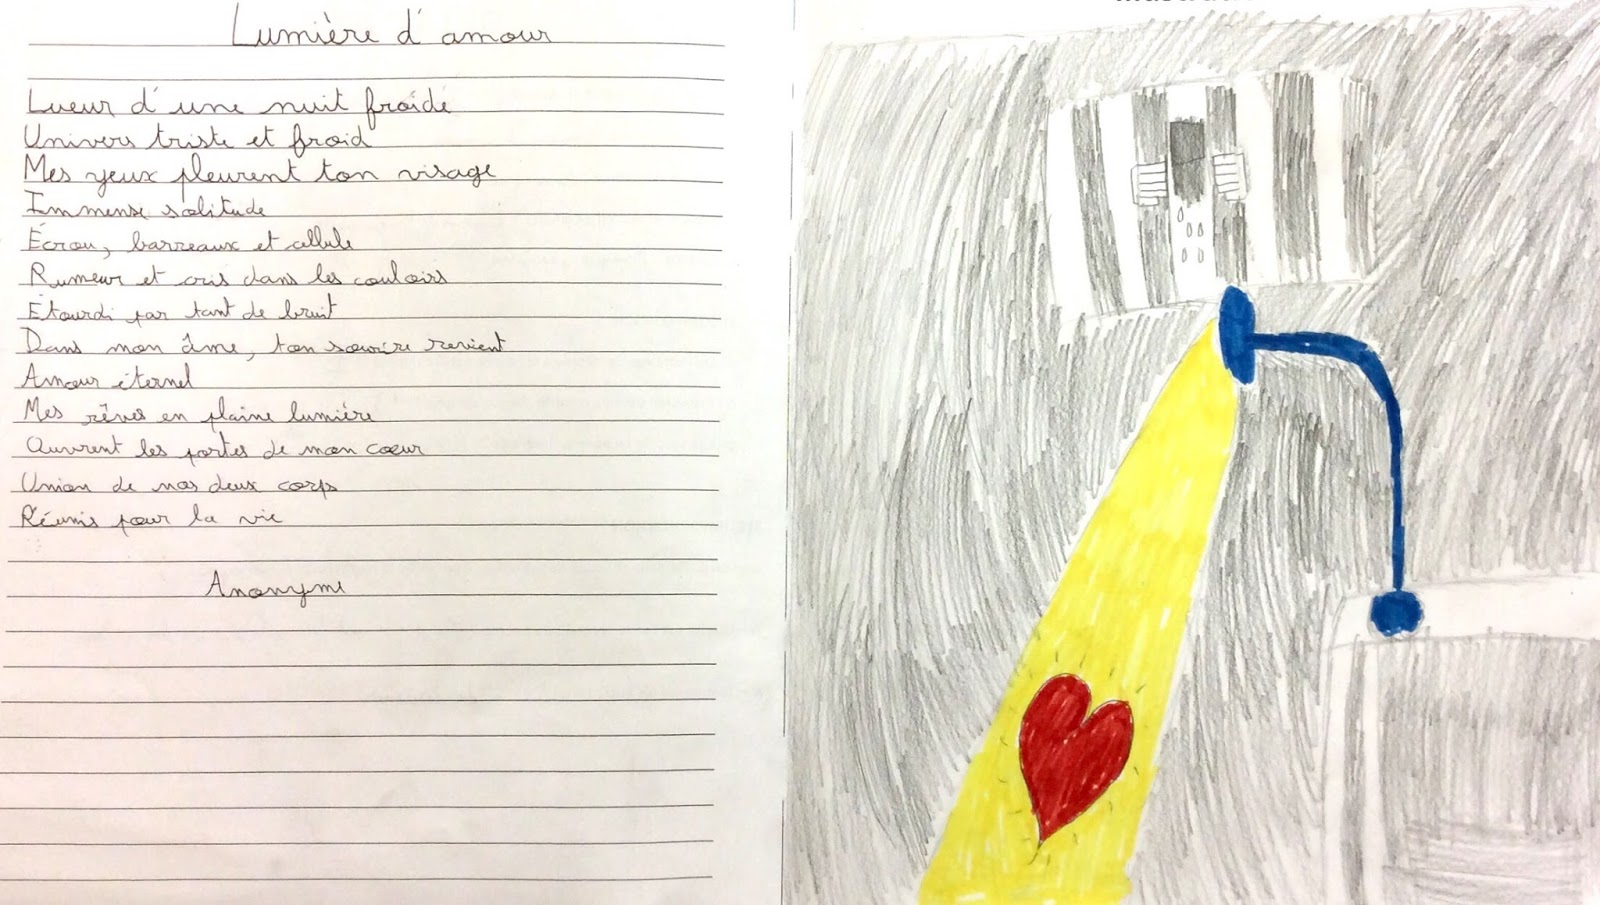 Lumière d'amour
Lueur d'une nuit froide
Univers triste et froid
Mes yeux pleurent ton visage
Immense solitude
Écrou, barreaux et cellule
Rumeur et cris dans les couloirs
Étourdi par tant de bruit
Dans mon âme, ton sourire revient
Amour éternel
Mes rêves en plaine lumière
Ouvrent les portes de mon cœur
Union de nos deux corps
Réunis pour la vie
Anonyme